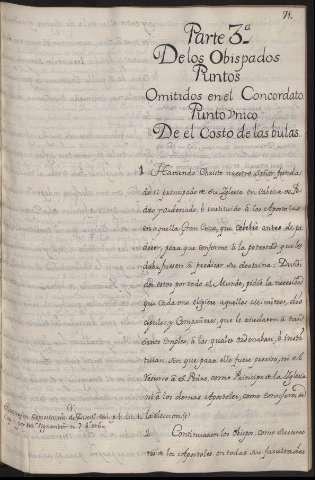 71.
Parte 3ª
De los Obispados
Puntos
Omitidos en el Concordato
Punto Vnico
De el Costo de las bulas.
1 Haviendo Christo nuestro Señor funda-
do el principado de su Iglesia en Cabeza de Pe-
dro, y ordenado, è instituido à los Apostoles
en aquella Gran Cena, que celebrò antes de pa-
decer, para que conforme à la potestad que les
daba, fuesen à predicar su doctrina: Dividi-
dos estos por todo el Mundo, pidiò la necesidad
que cada uno eligiese aquellos
cipulos y Compañeros, que le ayudaran à tan
Santo empleo, à los quales ordenaban, è insti-
tuian sin que para ello fuese preciso, ni el
recurso à Sn. Pedro, como Principe de la Iglesia
ni à los demas Apostoles, como
la eleccion.
2 Continuaron los Obispos, como succeso-
res de los Apostoles en todas sus facultades